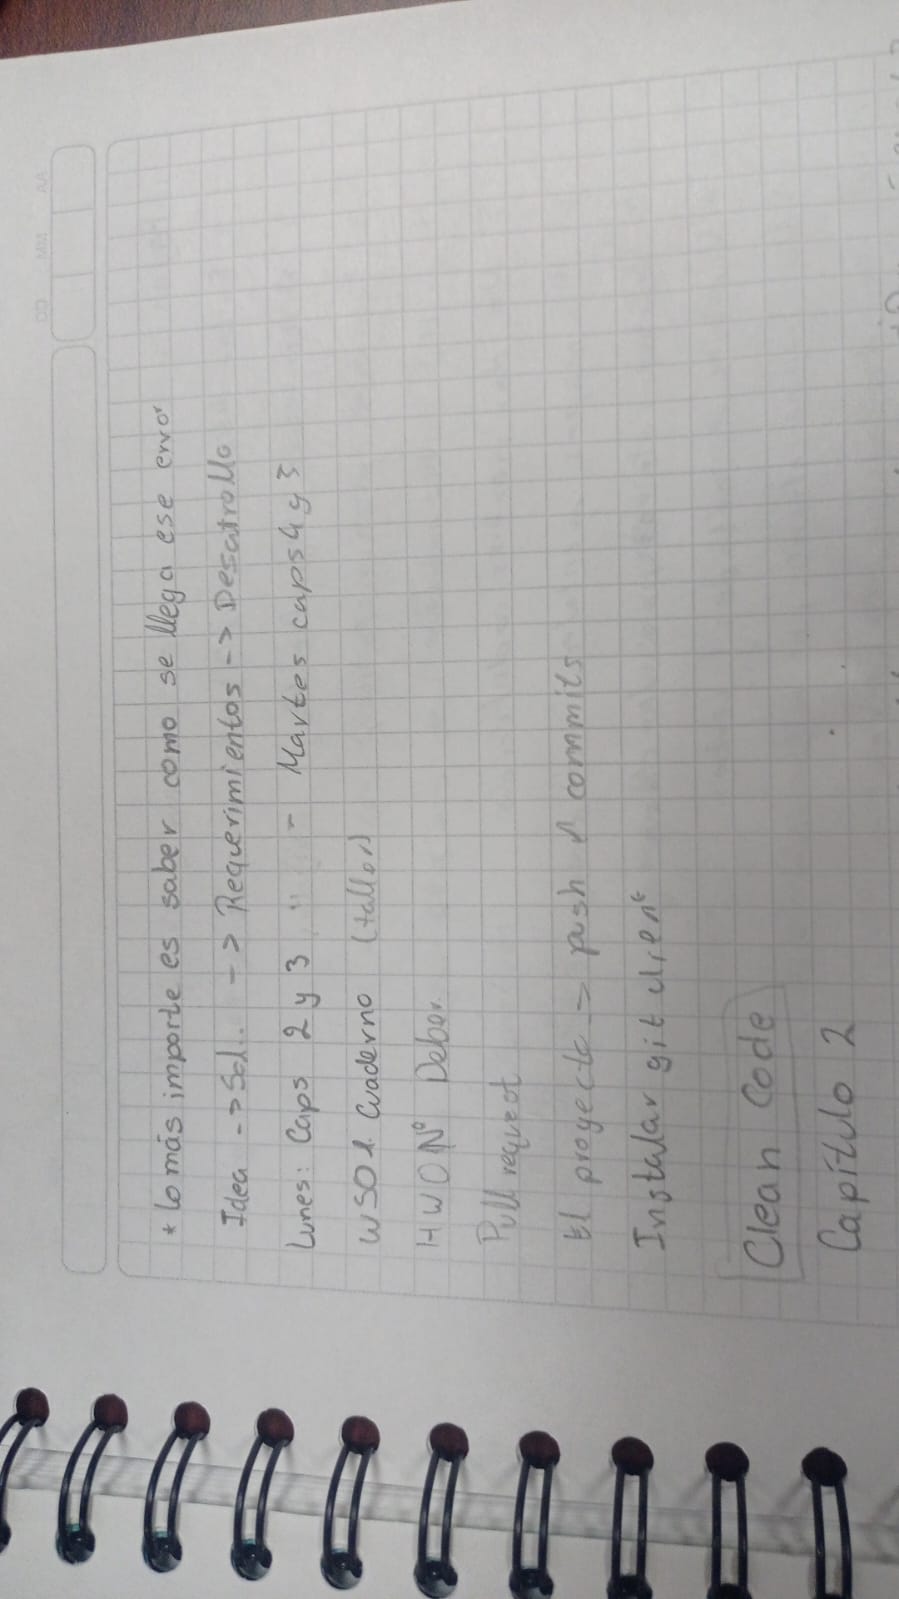 * lo más importe es saber como se llega ese error
Idea -> Sol. -> Requerimientos -> Desarrollo
Lunes: Caps 2 y 3 " - Martes caps 4 y 3
WSO1. Cuaderno
HWON° Deber.
Pull request
El proyecto -> push commits
Instalar git client
Clean Code
Capítulo 2
DD MM AA